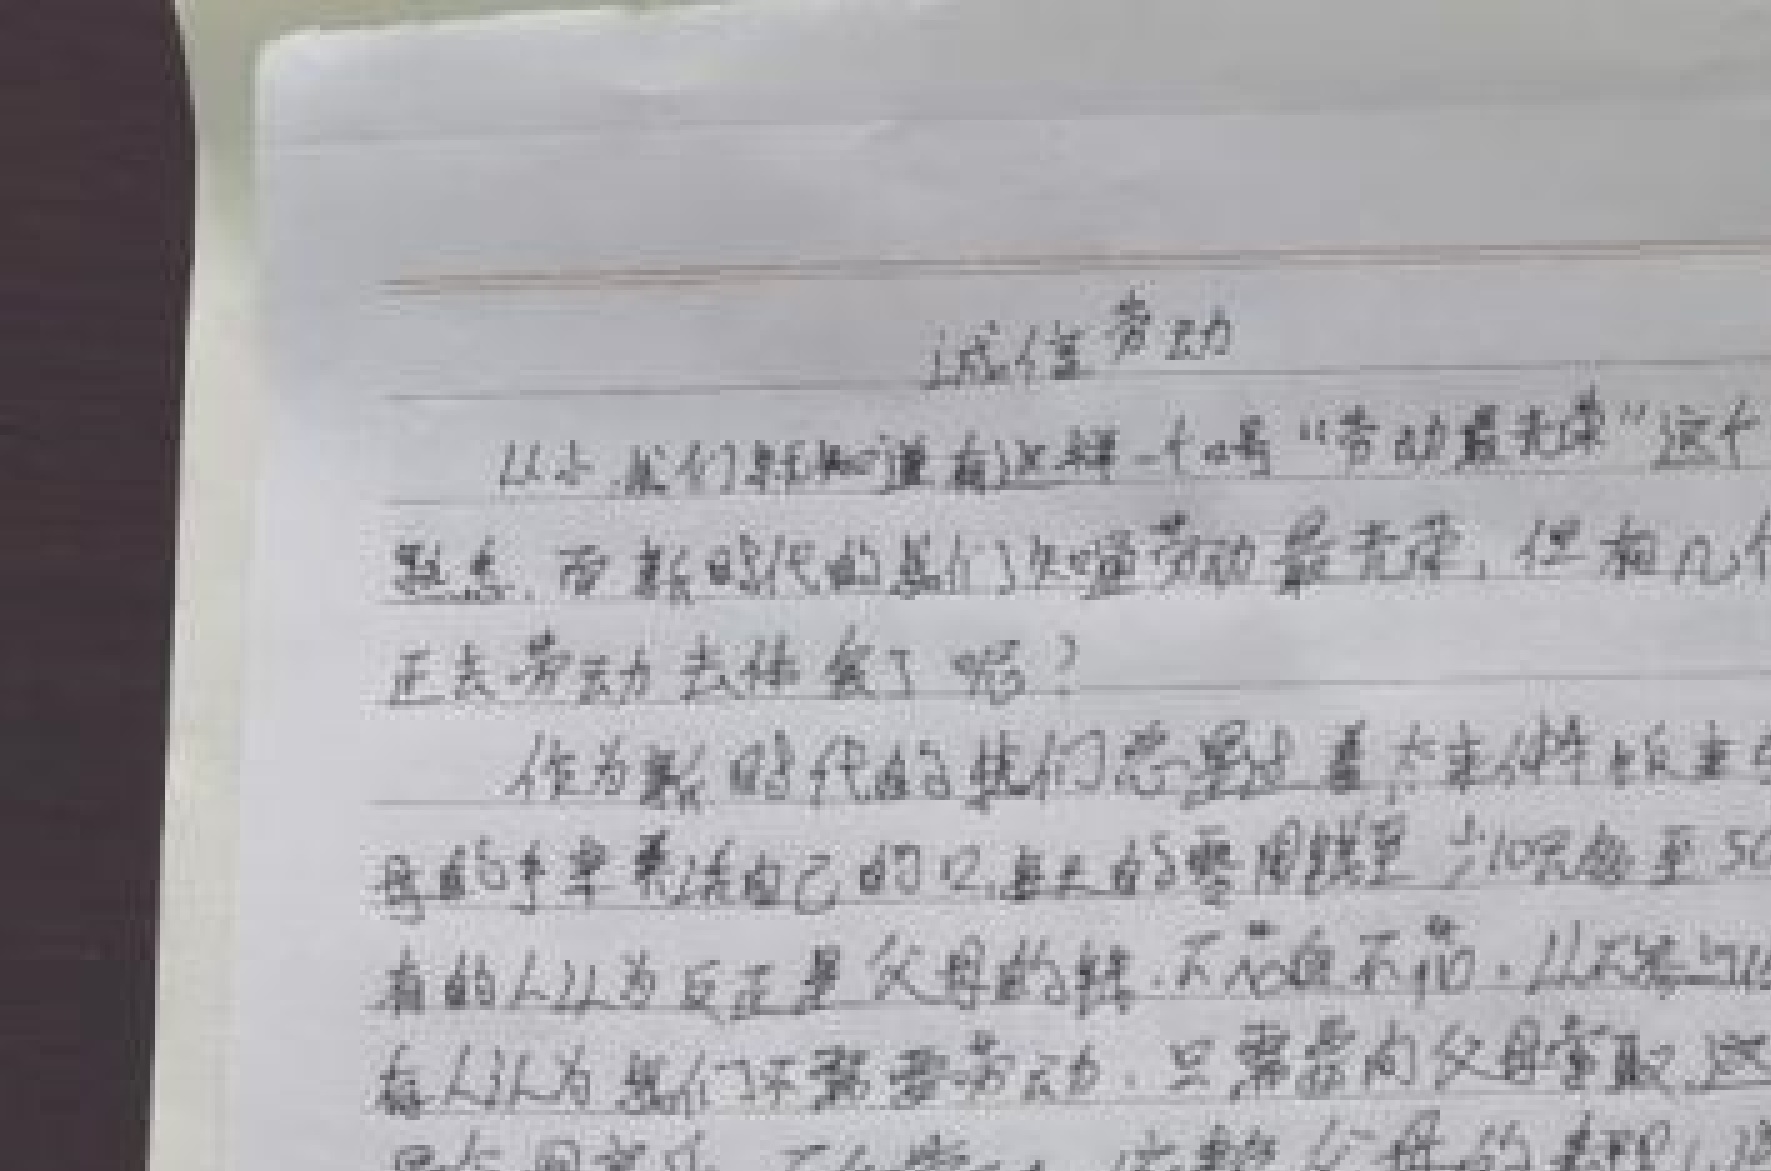 诚信劳动
从小我们就知道有这样一个口号“劳动最光荣”这个
而新时代的我们知道劳动最光荣，但有几个
正去劳动去体会了呢？
作为新时代的我们总是过着衣来伸手饭来
母的手来养活自己的口，每天的零用钱至少10元甚至50
有的人认为反正是父母的钱，不花白不花，
有人认为我们不需要劳动，只需要向父母拿取，这
父母的